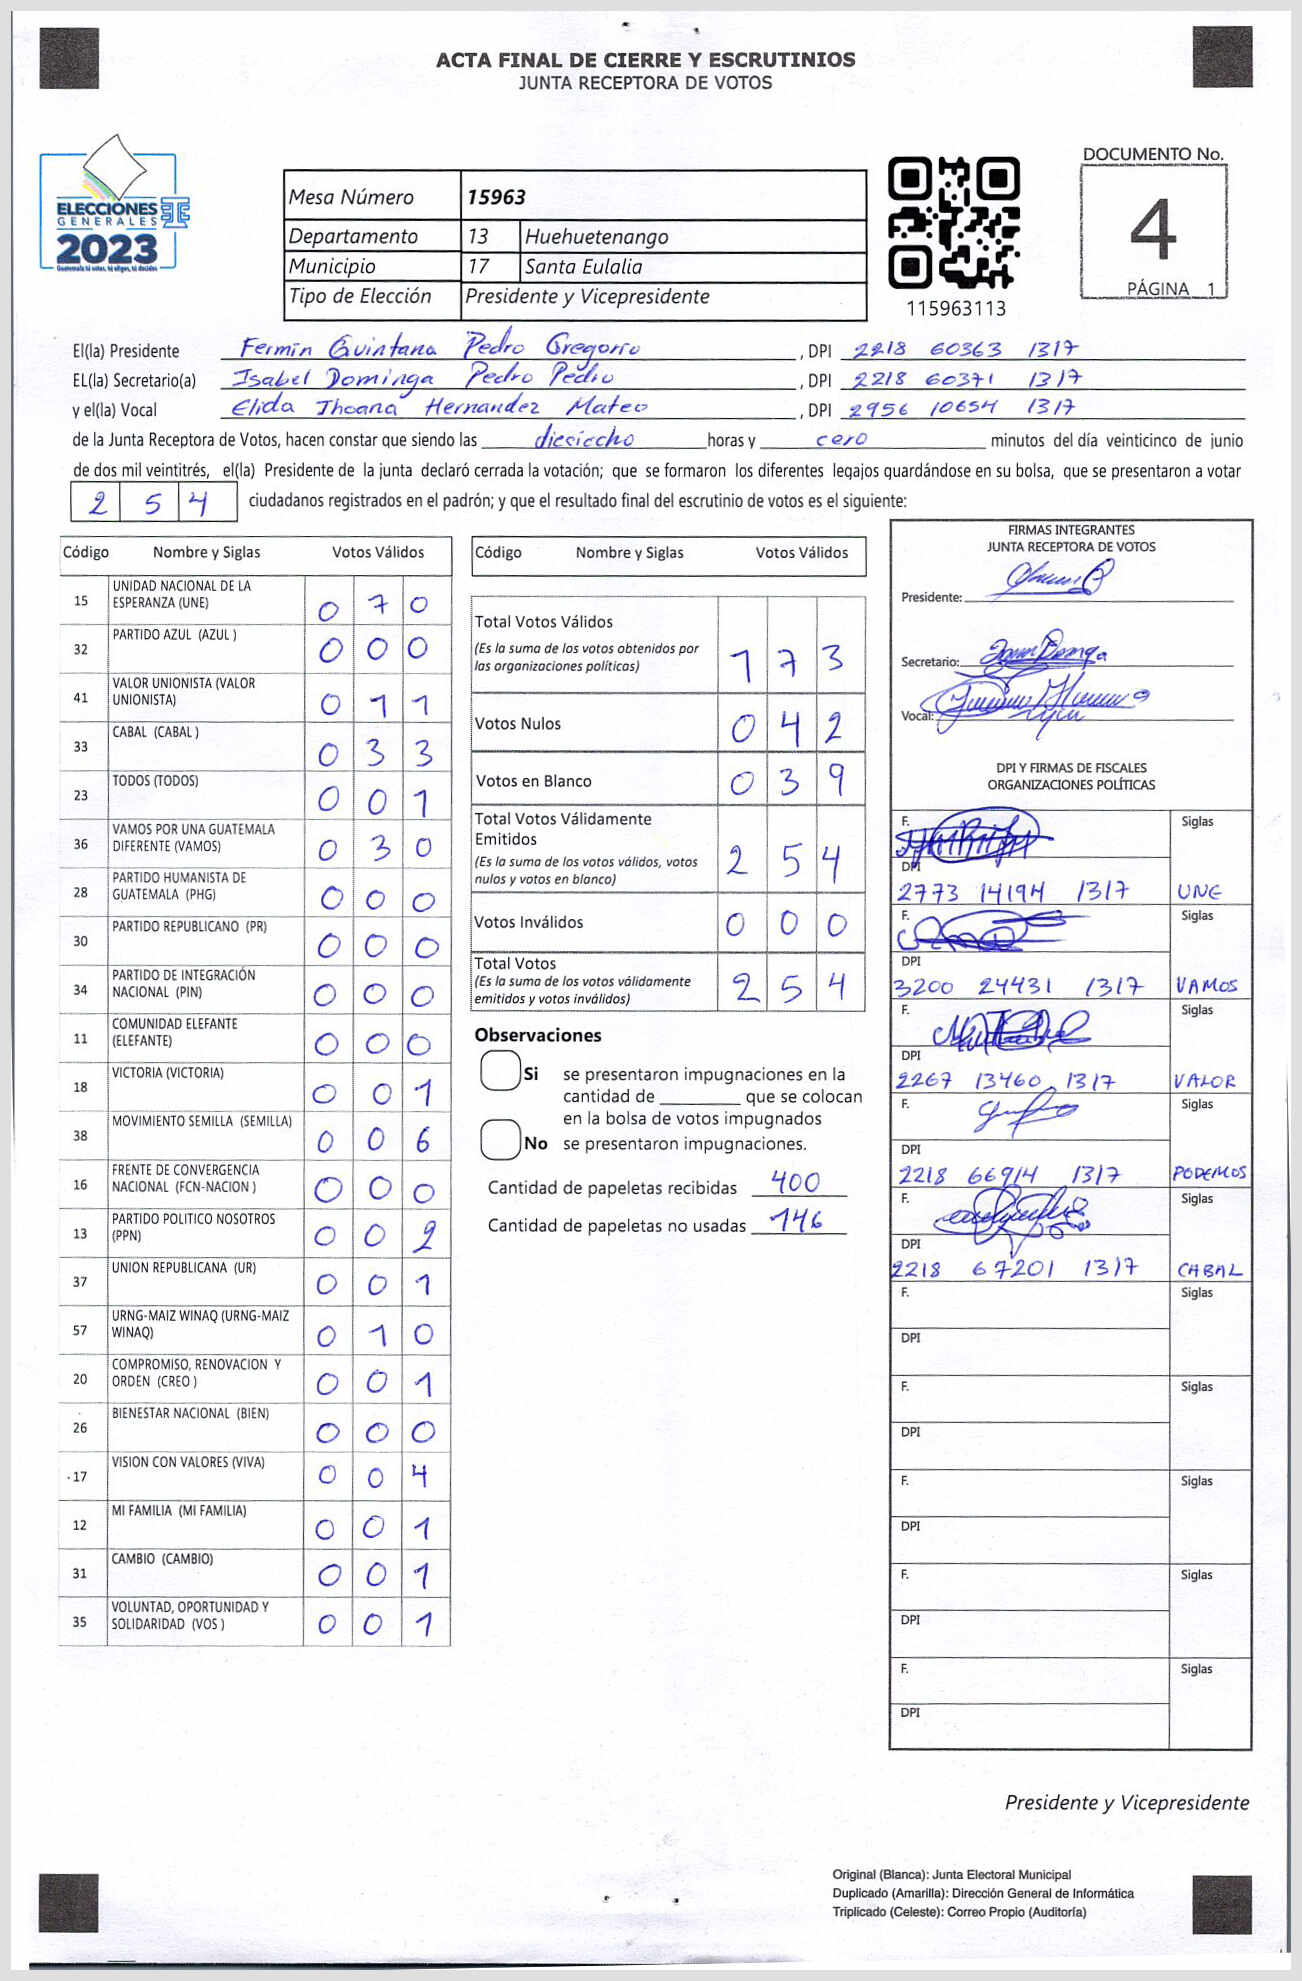 ACTA FINAL DE CIERRE Y ESCRUTINIOS
JUNTA RECEPTORA DE VOTOS
ELECCIONES
GENERALES
2023
Guatemala tú votas, tú eliges, tú decides
Mesa Número 15963
Departamento 13 Huehuetenango
Municipio 17 Santa Eulalia
Tipo de Elección Presidente y Vicepresidente
115963113
DOCUMENTO No.
4
PÁGINA 1
El(la) Presidente Fermin Quintana Pedro Gregorio , DPI 2218 60363 1317
EL(la) Secretario(a) Isabel Dominga Pedro Pedro , DPI 2218 60371 1317
y el(la) Vocal Elida Jhoana Hernandez Mateo , DPI 2956 10654 1317
de la Junta Receptora de Votos, hacen constar que siendo las dieciocho horas y cero minutos del día veinticinco de junio
de dos mil veintitrés, el(la) Presidente de la junta declaró cerrada la votación; que se formaron los diferentes legajos guardándose en su bolsa, que se presentaron a votar
2 5 4 ciudadanos registrados en el padrón; y que el resultado final del escrutinio de votos es el siguiente:
Código Nombre y Siglas Votos Válidos
15 UNIDAD NACIONAL DE LA ESPERANZA (UNE) 0 7 0
32 PARTIDO AZUL (AZUL ) 0 0 0
41 VALOR UNIONISTA (VALOR UNIONISTA) 0 1 1
33 CABAL (CABAL ) 0 3 3
23 TODOS (TODOS) 0 0 1
36 VAMOS POR UNA GUATEMALA DIFERENTE (VAMOS) 0 3 0
28 PARTIDO HUMANISTA DE GUATEMALA (PHG) 0 0 0
30 PARTIDO REPUBLICANO (PR) 0 0 0
34 PARTIDO DE INTEGRACIÓN NACIONAL (PIN) 0 0 0
11 COMUNIDAD ELEFANTE (ELEFANTE) 0 0 0
18 VICTORIA (VICTORIA) 0 0 1
38 MOVIMIENTO SEMILLA (SEMILLA) 0 0 6
16 FRENTE DE CONVERGENCIA NACIONAL (FCN-NACION ) 0 0 0
13 PARTIDO POLITICO NOSOTROS (PPN) 0 0 2
37 UNION REPUBLICANA (UR) 0 0 1
57 URNG-MAIZ WINAQ (URNG-MAIZ WINAQ) 0 1 0
20 COMPROMISO, RENOVACION Y ORDEN (CREO ) 0 0 1
26 BIENESTAR NACIONAL (BIEN) 0 0 0
17 VISION CON VALORES (VIVA) 0 0 4
12 MI FAMILIA (MI FAMILIA) 0 0 1
31 CAMBIO (CAMBIO) 0 0 1
35 VOLUNTAD, OPORTUNIDAD Y SOLIDARIDAD (VOS ) 0 0 1
Código Nombre y Siglas Votos Válidos
Total Votos Válidos
(Es la suma de los votos obtenidos por
las organizaciones políticas) 1 7 3
Votos Nulos 0 4 2
Votos en Blanco 0 3 9
Total Votos Válidamente
Emitidos
(Es la suma de los votos válidos, votos
nulos y votos en blanco) 2 5 4
Votos Inválidos 0 0 0
Total Votos
(Es la suma de los votos válidamente
emitidos y votos inválidos) 2 5 4
Observaciones
Si se presentaron impugnaciones en la
cantidad de ________ que se colocan
en la bolsa de votos impugnados
No se presentaron impugnaciones.
Cantidad de papeletas recibidas 400
Cantidad de papeletas no usadas 146
FIRMAS INTEGRANTES
JUNTA RECEPTORA DE VOTOS
Presidente:
Secretario:
Vocal:
DPI Y FIRMAS DE FISCALES
ORGANIZACIONES POLÍTICAS
F. Siglas
DPI
2773 14194 1317 UNE
F. Siglas
DPI
3200 24431 1317 VAMOS
F. Siglas
DPI
2267 13460 1317 VALOR
F. Siglas
DPI
2218 66914 1317 PODEMOS
F. Siglas
DPI
2218 67201 1317 CABAL
F. Siglas
DPI
F. Siglas
DPI
F. Siglas
DPI
F. Siglas
DPI
F. Siglas
DPI
Presidente y Vicepresidente
Original (Blanca): Junta Electoral Municipal
Duplicado (Amarilla): Dirección General de Informática
Triplicado (Celeste): Correo Propio (Auditoría)